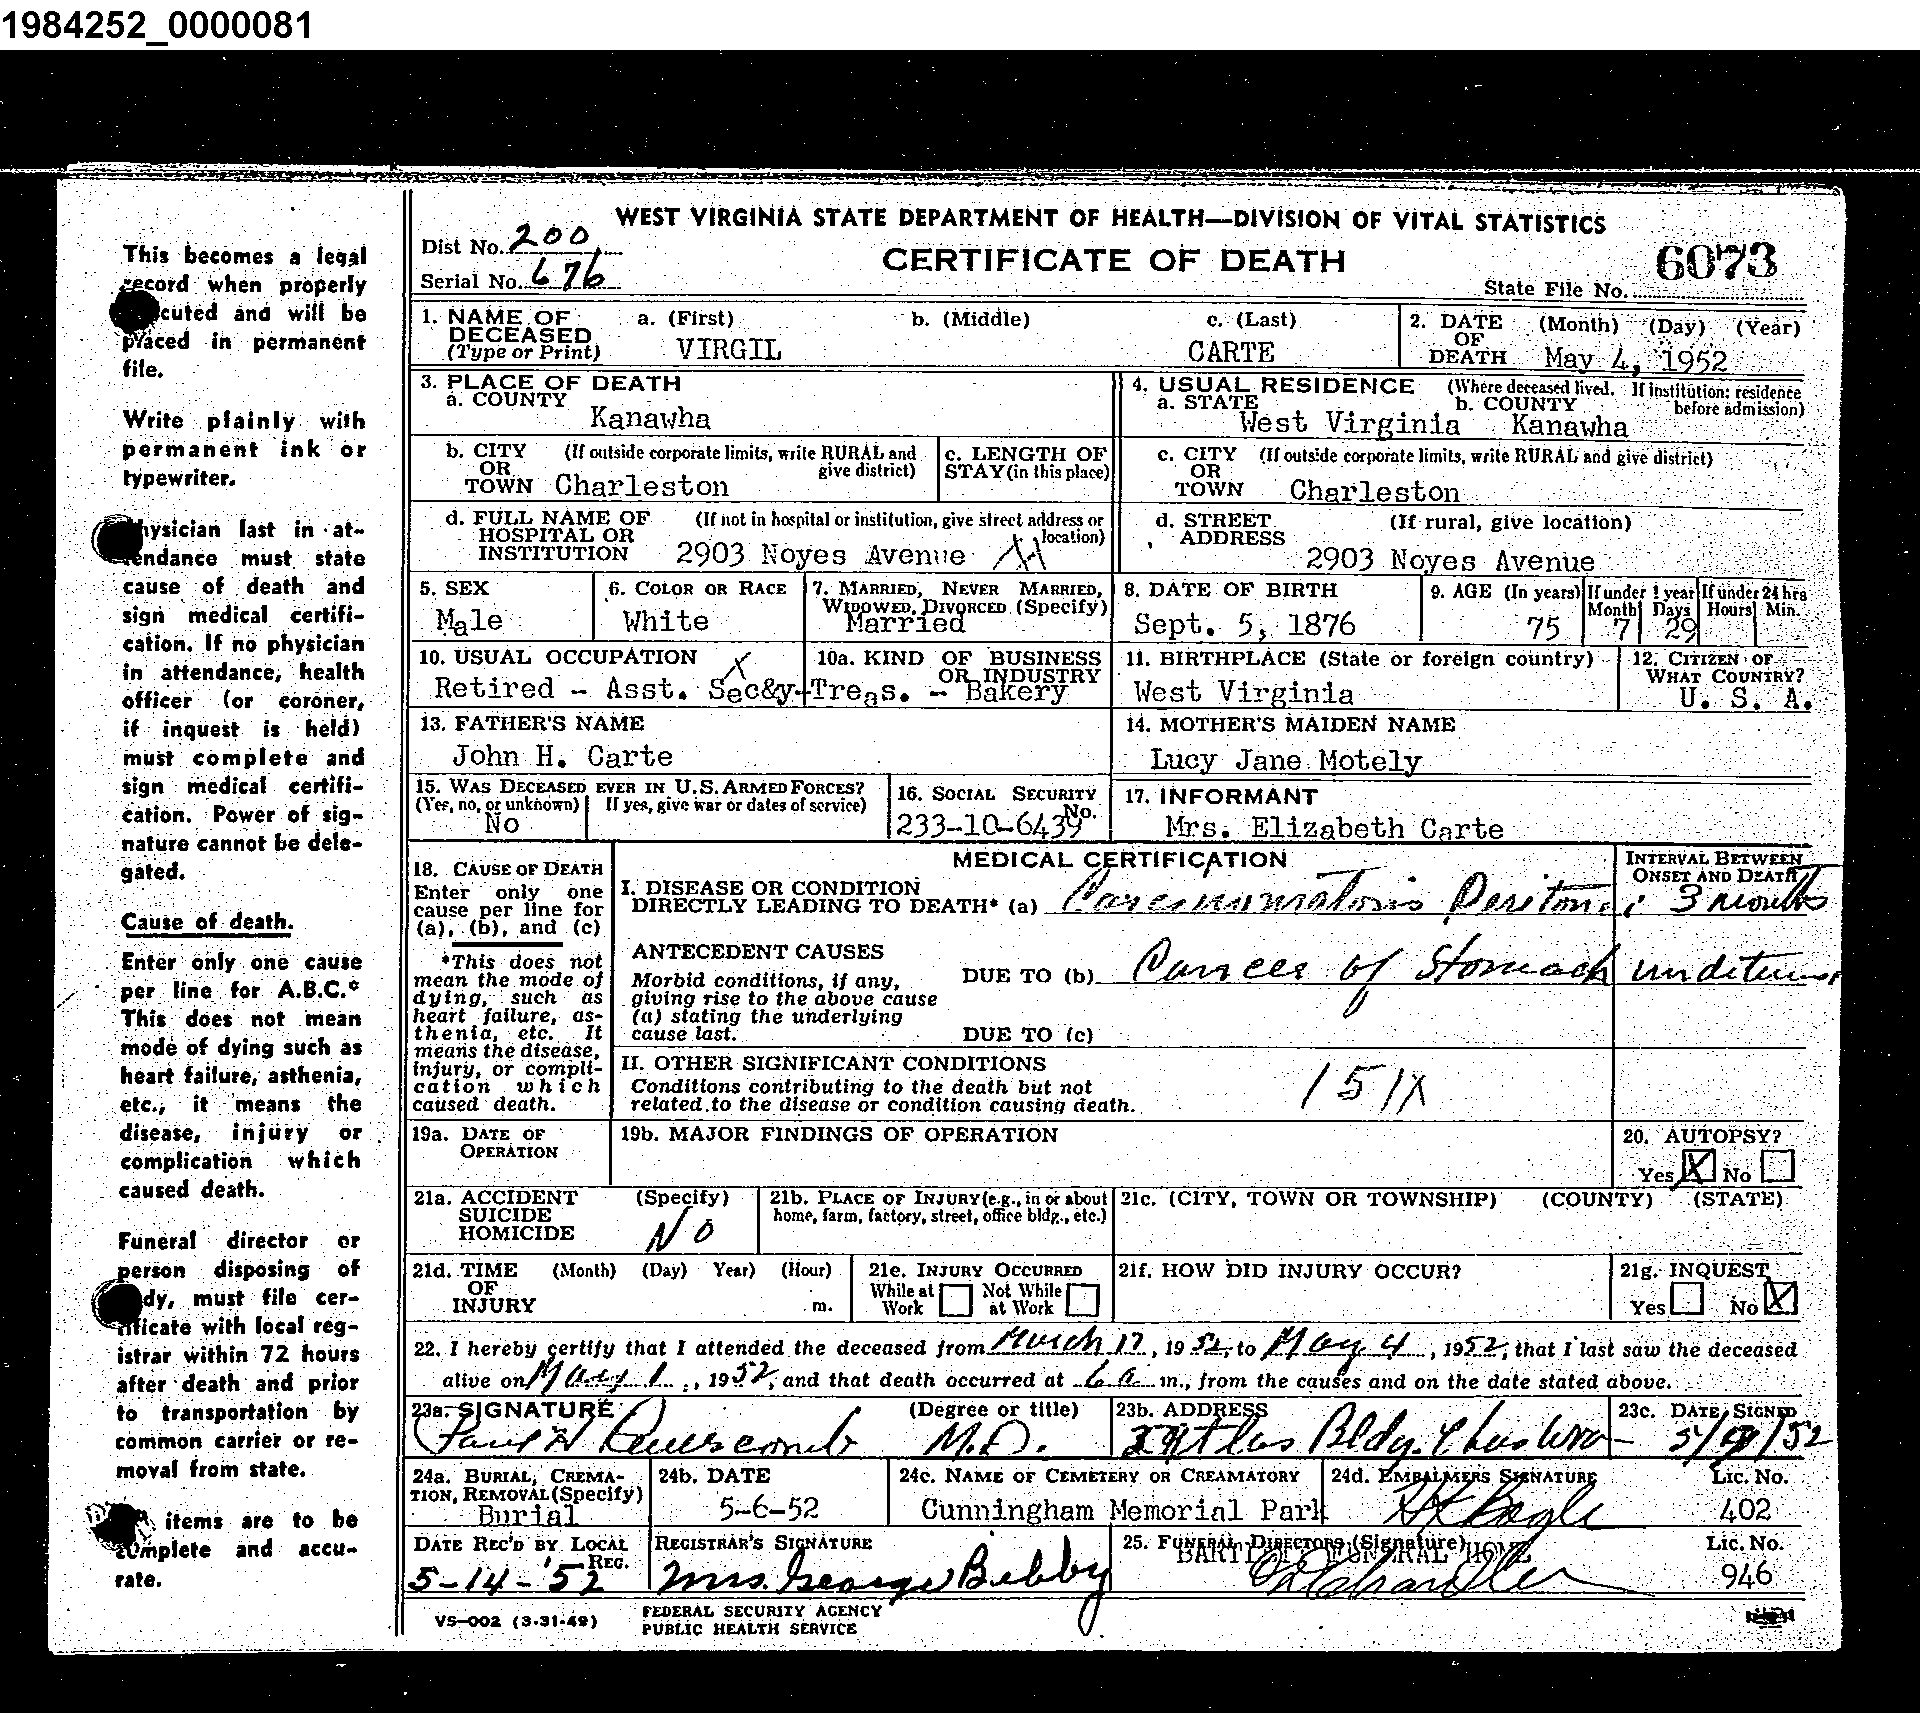 1984252_0000081
WEST VIRGINIA STATE DEPARTMENT OF HEALTH—DIVISION OF VITAL STATISTICS
Dist No. 200
Serial No. 676
CERTIFICATE OF DEATH
6073
State File No.
This becomes a legal
record when properly
cuted and will be
placed in permanent
file.
Write plainly with
permanent ink or
typewriter.
hysician last in at-
tendance must state
cause of death and
sign medical certifi-
cation. If no physician
in attendance, health
officer (or coroner,
if inquest is held)
must complete and
sign medical certifi-
cation. Power of sig-
nature cannot be dele-
gated.
Cause of death.
Enter only one cause
per line for A.B.C.*
This does not mean
mode of dying such as
heart failure, asthenia,
etc., it means the
disease, injury or
complication which
caused death.
Funeral director or
person disposing of
dy, must file cer-
tificate with local reg-
istrar within 72 hours
after death and prior
to transportation by
common carrier or re-
moval from state.
items are to be
complete and accu-
rate.
1. NAME OF DECEASED (Type or Print) a. (First) b. (Middle) c. (Last)
VIRGIL CARTE
2. DATE OF DEATH (Month) (Day) (Year)
May 4, 1952
3. PLACE OF DEATH
a. COUNTY
Kanawha
4. USUAL RESIDENCE (Where deceased lived. If institution: residence before admission)
a. STATE b. COUNTY
West Virginia Kanawha
b. CITY OR TOWN (If outside corporate limits, write RURAL and give district)
Charleston
c. LENGTH OF STAY (in this place)
c. CITY OR TOWN (If outside corporate limits, write RURAL and give district)
Charleston
d. FULL NAME OF HOSPITAL OR INSTITUTION (If not in hospital or institution, give street address or location)
2903 Noyes Avenue
d. STREET ADDRESS (If rural, give location)
2903 Noyes Avenue
5. SEX
Male
6. COLOR OR RACE
White
7. MARRIED, NEVER MARRIED, WIDOWED, DIVORCED (Specify)
Married
8. DATE OF BIRTH
Sept. 5, 1876
9. AGE (In years) If under 1 year Month Days If under 24 hrs Hours Min.
75 7 29
10. USUAL OCCUPATION X
10a. KIND OF BUSINESS OR INDUSTRY
Retired - Asst. Sec&y-Treas. - Bakery
11. BIRTHPLACE (State or foreign country)
West Virginia
12. CITIZEN OF WHAT COUNTRY?
U. S. A.
13. FATHER'S NAME
John H. Carte
14. MOTHER'S MAIDEN NAME
Lucy Jane Motely
15. WAS DECEASED EVER IN U.S. ARMED FORCES?
(Yes, no, or unknown) If yes, give war or dates of service)
No
16. SOCIAL SECURITY No.
233-10-6439
17. INFORMANT
Mrs. Elizabeth Carte
MEDICAL CERTIFICATION
INTERVAL BETWEEN ONSET AND DEATH
18. CAUSE OF DEATH
Enter only one
cause per line for
(a), (b), and (c)
*This does not
mean the mode of
dying, such as
heart failure, as-
thenia, etc. It
means the disease,
injury, or compli-
cation which
caused death.
I. DISEASE OR CONDITION
DIRECTLY LEADING TO DEATH* (a) 3 months
ANTECEDENT CAUSES
Morbid conditions, if any,
giving rise to the above cause
(a) stating the underlying
cause last.
DUE TO (b) Cancer of Stomach
DUE TO (c)
II. OTHER SIGNIFICANT CONDITIONS
Conditions contributing to the death but not
related to the disease or condition causing death.
151X
19a. DATE OF OPERATION
19b. MAJOR FINDINGS OF OPERATION
20. AUTOPSY?
Yes X No
21a. ACCIDENT SUICIDE HOMICIDE (Specify)
NO
21b. PLACE OF INJURY (e.g., in or about home, farm, factory, street, office bldg., etc.)
21c. (CITY, TOWN OR TOWNSHIP) (COUNTY) (STATE)
21d. TIME OF INJURY (Month) (Day) Year) (Hour) m.
21e. INJURY OCCURRED
While at Work Not While at Work
21f. HOW DID INJURY OCCUR?
21g. INQUEST
Yes No X
22. I hereby certify that I attended the deceased from March 17, 1952, to May 4, 1952, that I last saw the deceased
alive on May 1, 1952, and that death occurred at 6 a m., from the causes and on the date stated above.
23a. SIGNATURE (Degree or title)
M.D.
23b. ADDRESS
Atlas Bldg.
23c. DATE SIGNED
24a. BURIAL, CREMA-
TION, REMOVAL (Specify)
Burial
24b. DATE
5-6-52
24c. NAME OF CEMETERY OR CREAMATORY
Cunningham Memorial Park
24d. EMBALMERS SIGNATURE Lic. No.
402
DATE REC'D BY LOCAL REG.
5-14-'52
REGISTRAR'S SIGNATURE
Mrs. George Bibby
25. FUNERAL DIRECTORS (Signature) Lic. No.
FUNERAL HOME
946
VS-002 (3-31-49)
FEDERAL SECURITY AGENCY
PUBLIC HEALTH SERVICE